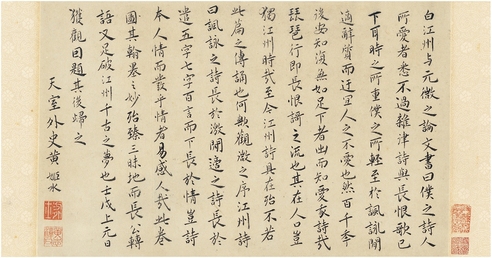 白江州与元微之論文書曰僕之詩人
所愛者悉不過雜律詩與長恨歌已
下耳時之所重僕之所輕至於諷諭閒
適辭質而迂宜人之不愛也然百千年
後安知復無如足下者出而知愛我詩哉
琵琶行即長恨謌之流也其在人口豈
獨江州時哉至今江州詩具在殆不若
此篇之傳誦也何歟觀微之序江州詩
曰諷詠之詩長於激閒適之詩長於
遣五字七字百言而下長於情豈詩
本人情而發乎情者易感人哉此卷
圖其翰墨之妙殆臻三昧地而長公轉
語又足破江州千古之夢也壬戌上元日
獲觀因題其後歸之
天室外史黄姬水